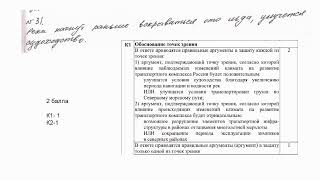 № 31.
Реки начнут раньше вскрываться ото льда, улучшется
судоходство.
2 балла
К1- 1
К2-1
К1 Обоснование точек зрения 2
В ответе приводятся правильные аргументы в защиту каждой из
точек зрения:
1) аргумент, подтверждающий точку зрения, согласно которой
влияние наблюдаемых изменений климата на развитие
транспортного комплекса России будет положительным
улучшатся условия судоходства благодаря увеличению
периода на реках
ИЛИ улучшатся условия транспортировки грузов по
Северному морскому пути;
2) аргумент, подтверждающий точку зрения, согласно которой
влияние происходящих изменений климата на развитие
транспортного комплекса будет отрицательным:
возможно разрушение элементов транспортной инфра-
структуры в районах оттаивания многолетней мерзлоты
ИЛИ сокращение периода эксплуатации зимников
в северных районах
В ответе приводятся правильные аргументы в защиту 1
только одной из точек зрения